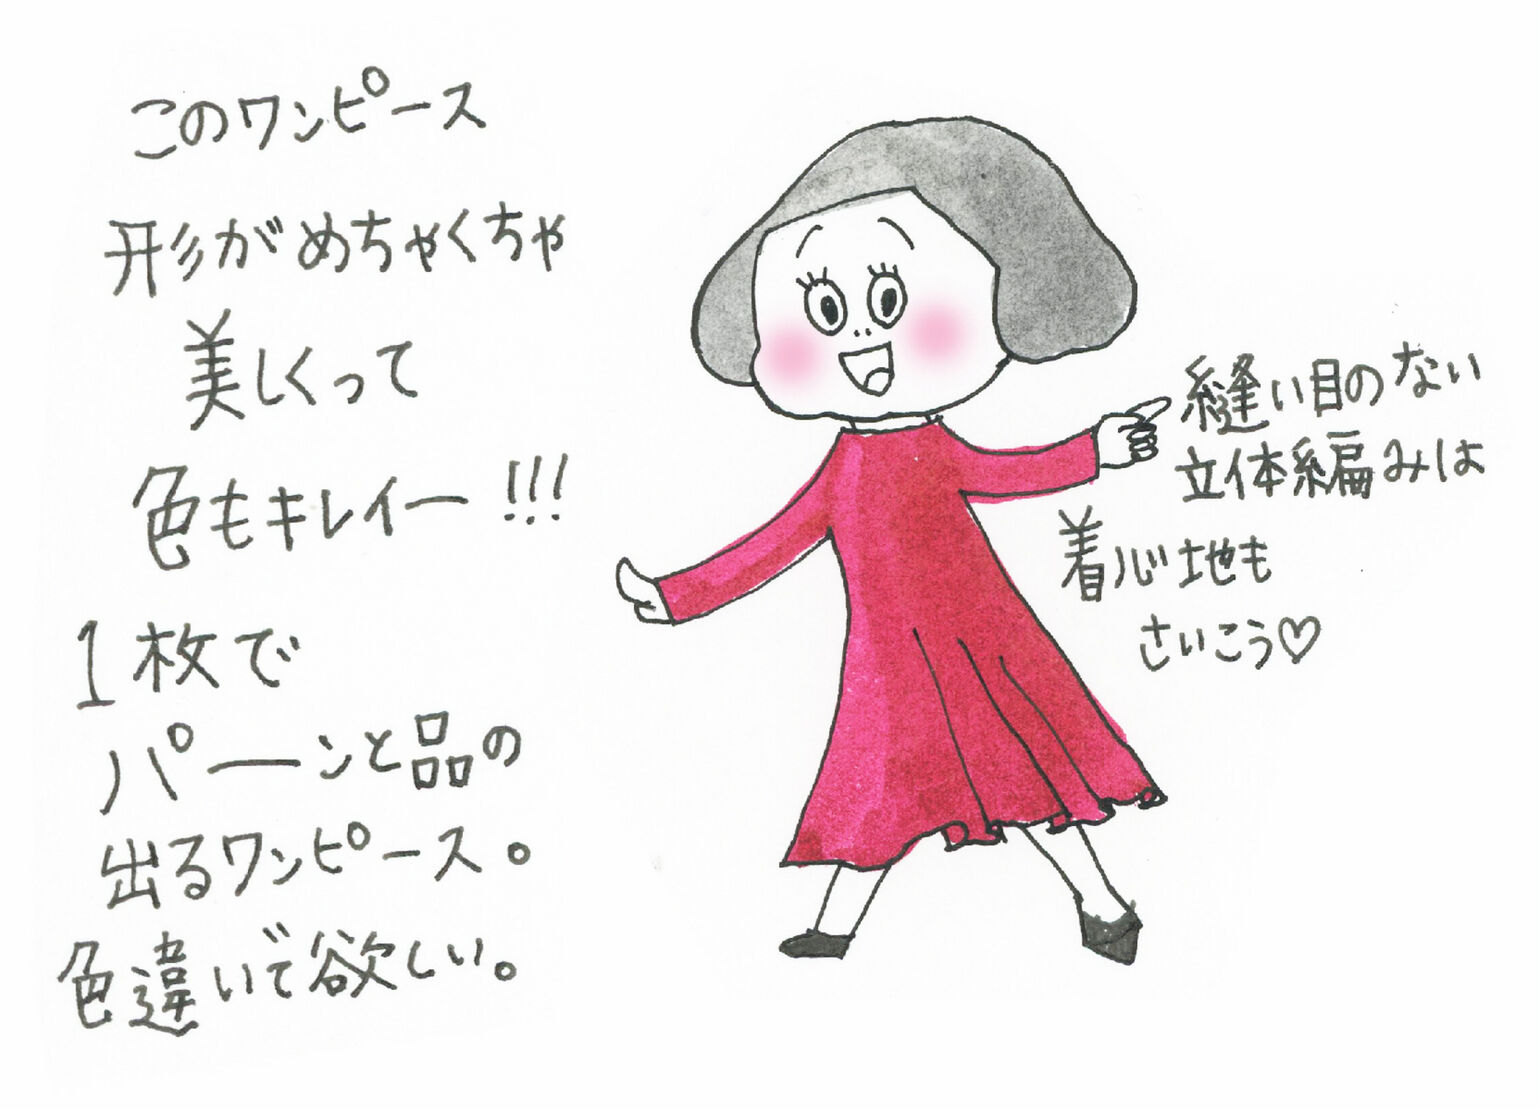 このワンピース
形がめちゃくちゃ
美しくって
色もキレイー!!!
1枚で
パーンと品の
出るワンピース。
色違いで欲しい。
縫い目のない
立体編みは
着心地も
さいこう♡